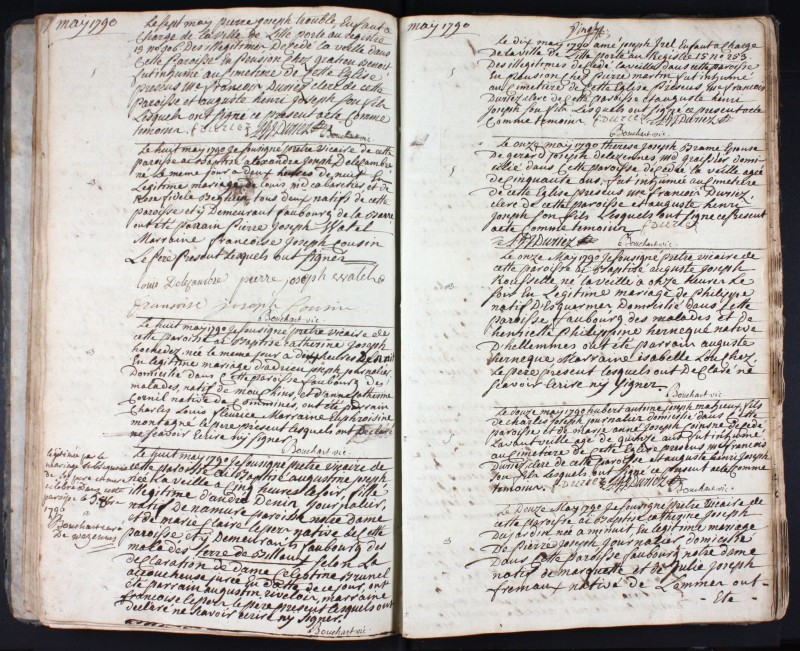 may 1790
Le sept may pierre joseph trouble Enfant a
charge de la ville de Lille porté au registre
13 no 906 Des illegitimes Decedé la veille dans
cette paroisse en pension chez
fut inhumé au cimetiere de cette Eglise
presens mre francois Duriez clerc de cette
paroisse et auguste henri Joseph son fils
Lesquels ont signé ce present acte Comme
temoins. Duriez APJ Duriez
Bouchart vic:
Le huit may 1790 Je sousigné pretre vicaire de cette
paroisse ai Baptisé alexandre Joseph Delezambre
né La meme jour a deux heures de nuit En
Legitime mariage de Louis md cabaretier et de
Rose fidele Beghein tous deux natifs de cette
paroisse et y Demeurant faubourg de la Barre
ont été parain Pierre Joseph Watel
Marraine francoise Joseph Cousin
Le pere present Lesquels ont signés
Louis Delezambre pierre joseph watel
francoise joseph Cousin
Bouchart vic:
Le huit may 1790 Je sousigné pretre vicaire de
cette paroisse ai Baptisé catherine Joseph
née la meme jour a deux heures De nuit
En legitime mariage d'adrien joseph journalier
Domicilié dans cette paroisse faubourg des
malades, natif de mouchins, et d'anne catherine
Cornil native de Commines, ont été parrain
Charles Louis Marraine Euphroisine
montagne le pere present lesquels ont Declaré
ne scavoir Ecrire ny signer
Bouchart vic:
Le huit may 1790 Je sousigné pretre vicaire de
cette paroisse ai Baptisé augustine joseph
née La veille a cinq heures Le soir, fille
illegitime d'andré Denin journalier,
natif de namure paroisse notre Dame
et de marie claire Lepers native de cette
paroisse et y Demeurant faubourg des
malades selon La
Declaration de dame celestine Brunel
accoucheuse jurée En datte de ce jour, ont
été parrain augustin marraine
francoise Lepers le pere present lesquels ont
declaré ne scavoir Ecrire ny signer.
Bouchart vic:
legitimée par le
mariage
celebré dans cette
paroisse le
1790
Bouchart curé
de wazemmes
may 1790
Vingt
Le dix may 1790 amé joseph Enfant a Charge
De la ville de Lille porté au Registre 15 no 253
Des illegitimes Decedé la veille dans cette paroisse
En pension chez pierre martin fut inhumé
au cimetiere de cette Eglise Presens mre francois
Duriez clerc de cette paroisse et auguste henri
Joseph son fils Lesquels ont signé ce present acte
Comme temoins Duriez APJ Duriez
Bouchart vic:
Le onze may 1790 therese Joseph Brame Epouse
De gerard joseph delezennes md graissier domi-
cilié dans cette paroisse decedée la veille agée
de cinquante ans, fut inhumée au cimetiere
de cette Eglise presens mre francois Duriez
clerc de cette paroisse et auguste henri
Joseph son fils Lesquels ont signé ce present
acte Comme temoins Duriez
APJ Duriez
Bouchart vic:
Le onze May 1790 Je sousigné pretre vicaire de
cette paroisse ai Baptisé auguste Joseph
Rousselle né la veille a onze heures Le
soir En Legitime mariage de Philippe
natif D'Esquermes Domicilié dans cette
paroisse faubourg des malades et de
henriette philippine herneque native
D'hellemmes ont été parrain auguste
herneque Marraine isabelle
Le pere present lesquels ont Declaré ne
scavoir Ecrire ny signer.
Bouchart vic:
Le Douze May 1790 hubert antoine joseph fils
de charles joseph journalier domicilié dans cette
paroisse et de marie anne Joseph Decedé
La veille agé de quinze ans fut inhumé
au cimetiere de cette Eglise presens mre francois
Duriez clerc de cette paroisse et auguste henri joseph
son fils lesquels ont signé ce present acte Comme
temoins. Duriez APJ Duriez
Bouchart vic:
Le Douze May 1790 Je sousigné Pretre Vicaire de
cette paroisse ai Baptisé catherine Joseph
Dujardin née a minuit En legitime mariage
De Pierre Joseph Journalier domicilié
Dans cette paroisse faubourg notre dame
natif de marquette et de julie Joseph
fremaux native de Lommes ont-
- Eté -